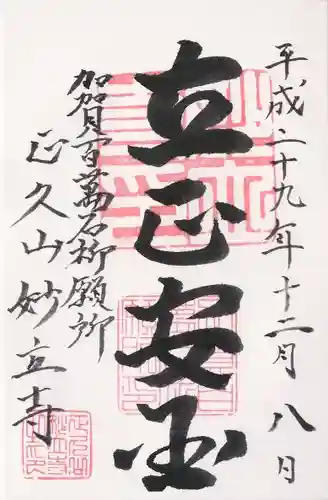 平成二十九年十二月八日
立正安国
加賀百萬石御願所
正久山妙立寺